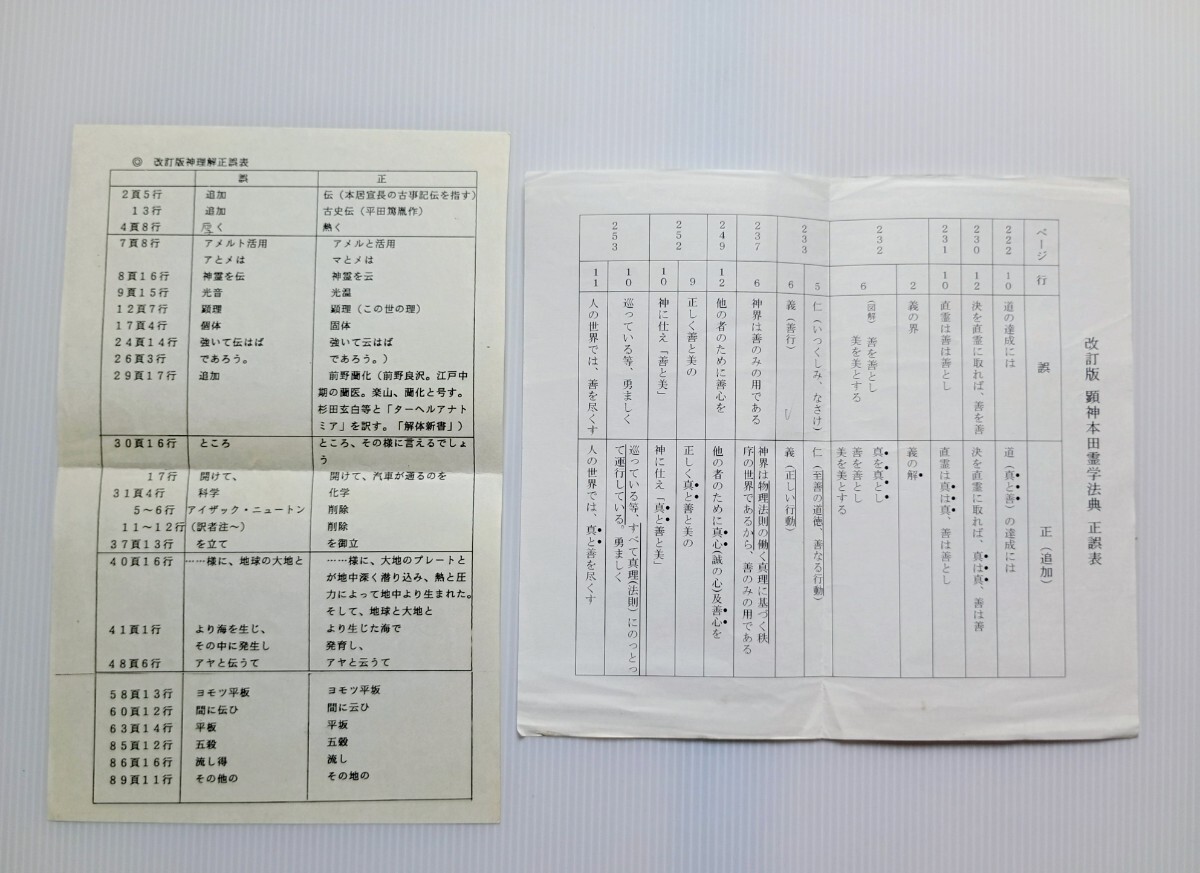 ◎ 改訂版神理解正誤表
誤 正
2頁5行 追加 伝（本居宣長の古事記伝を指す）
13行 追加 古史伝（平田篤胤作）
4頁8行 く 熱く
7頁8行 アメルト活用 アメルと活用
アとメは マとメは
8頁16行 神霊を伝 神霊を云
9頁15行 光音 光温
12頁7行 顕理 顕理（この世の理）
17頁4行 個体 固体
24頁14行 強いて伝はば 強いて云はば
26頁3行 であろう。 であろう。）
29頁17行 追加 前野蘭化（前野良沢。江戸中
期の蘭医。楽山、蘭化と号す。
杉田玄白等と「ターヘルアナト
ミア」を訳す。「解体新書」）
30頁16行 ところ ところ、その様に言えるでしょ
う
17行 開けて、 開けて、汽車が通るのを
31頁4行 科学 化学
5～6行 アイザック・ニュートン 削除
11～12行 （訳者注～） 削除
37頁13行 を立て を御立
40頁16行 ……様に、地球の大地と ……様に、大地のプレートと
が地中深く潜り込み、熱と圧
力によって地中より生まれた。
そして、地球と大地と
41頁1行 より海を生じ、 より生じた海で
その中に発生し 発育し、
48頁6行 アヤと伝うて アヤと云うて
58頁13行 ヨモツ平板 ヨモツ平坂
60頁12行 間に伝ひ 間に云ひ
63頁14行 平板 平坂
85頁12行 五殺 五穀
86頁16行 流し得 流し
89頁11行 その他の その地の
改訂版 顕神本田霊学法典 正誤表
ページ 行 誤 正（追加）
222 10 道の達成には 道（真と善）の達成には
230 12 決を直霊に取れば、善を善 決を直霊に取れば、真は真、善は善
231 10 直霊は善は善とし 直霊は真は真、善は善とし
232 2 義の界 義の解
6 （図解） 善を善とし 真を真とし
美を美とする 善を善とし
美を美とする
233 5 仁（いつくしみ、なさけ） 仁（至善の道徳、善なる行動）
6 義（善行） 義（正しい行動）
237 6 神界は善のみの用である 神界は物理法則の働く真理に基づく秩
序の世界であるから、善のみの用である
249 12 他の者のために善心を 他の者のために真心（誠の心）及善心を
252 9 正しく善と美の 正しく真と善と美の
10 神に仕え「善と美」 神に仕え「真と善と美」
253 10 巡っている等、勇ましく 巡っている等、すべて真理（法則）にのっとっ
て運行している。勇ましく
11 人の世界では、善を尽くす 人の世界では、真と善を尽くす